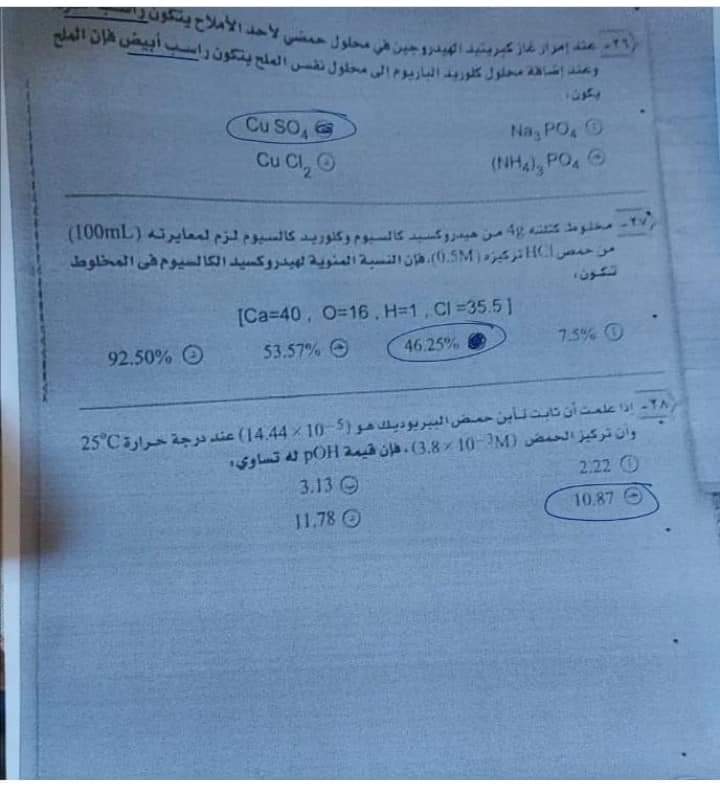 ٢٦- عند إمرار غاز كبريتيد الهيدروجين في محلول حمضي لأحد الأملاح يتكون راسب
وعند إضافة محلول كلوريد الباريوم إلى محلول نفس الملح يتكون راسب أبيض فإن الملح
يكون:
أ Na3PO4
CuSO4
ج (NH4)3PO4
د CuCl2
٢٧- مخلوط كتلته 4g من هيدروكسيد كالسيوم وكلوريد كالسيوم لزم لمعايرته (100mL)
من حمض HCl تركيزه (0.5M). فإن النسبة المئوية لهيدروكسيد الكالسيوم فى المخلوط
تكون:
[Ca=40 , O=16 , H=1 , Cl =35.5]
أ 7.5%
46.25%
ج 53.57%
د 92.50%
٢٨- إذا علمت أن ثابت تأين حمض البيريوديك هو (14.44 × 10⁻⁵) عند درجة حرارة 25°C
وأن تركيز الحمض (3.8 × 10⁻³M)، فإن قيمة pOH له تساوي:
أ 2.22
ب 3.13
ج 10.87
د 11.78